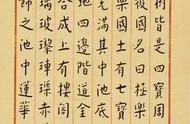 樹皆是四寶周
彼國名曰極樂
樂國土有七寶
充滿其中池底
地四邊階道金
合成上有樓閣
璃玻瓈硨磲赤
飾之池中蓮華